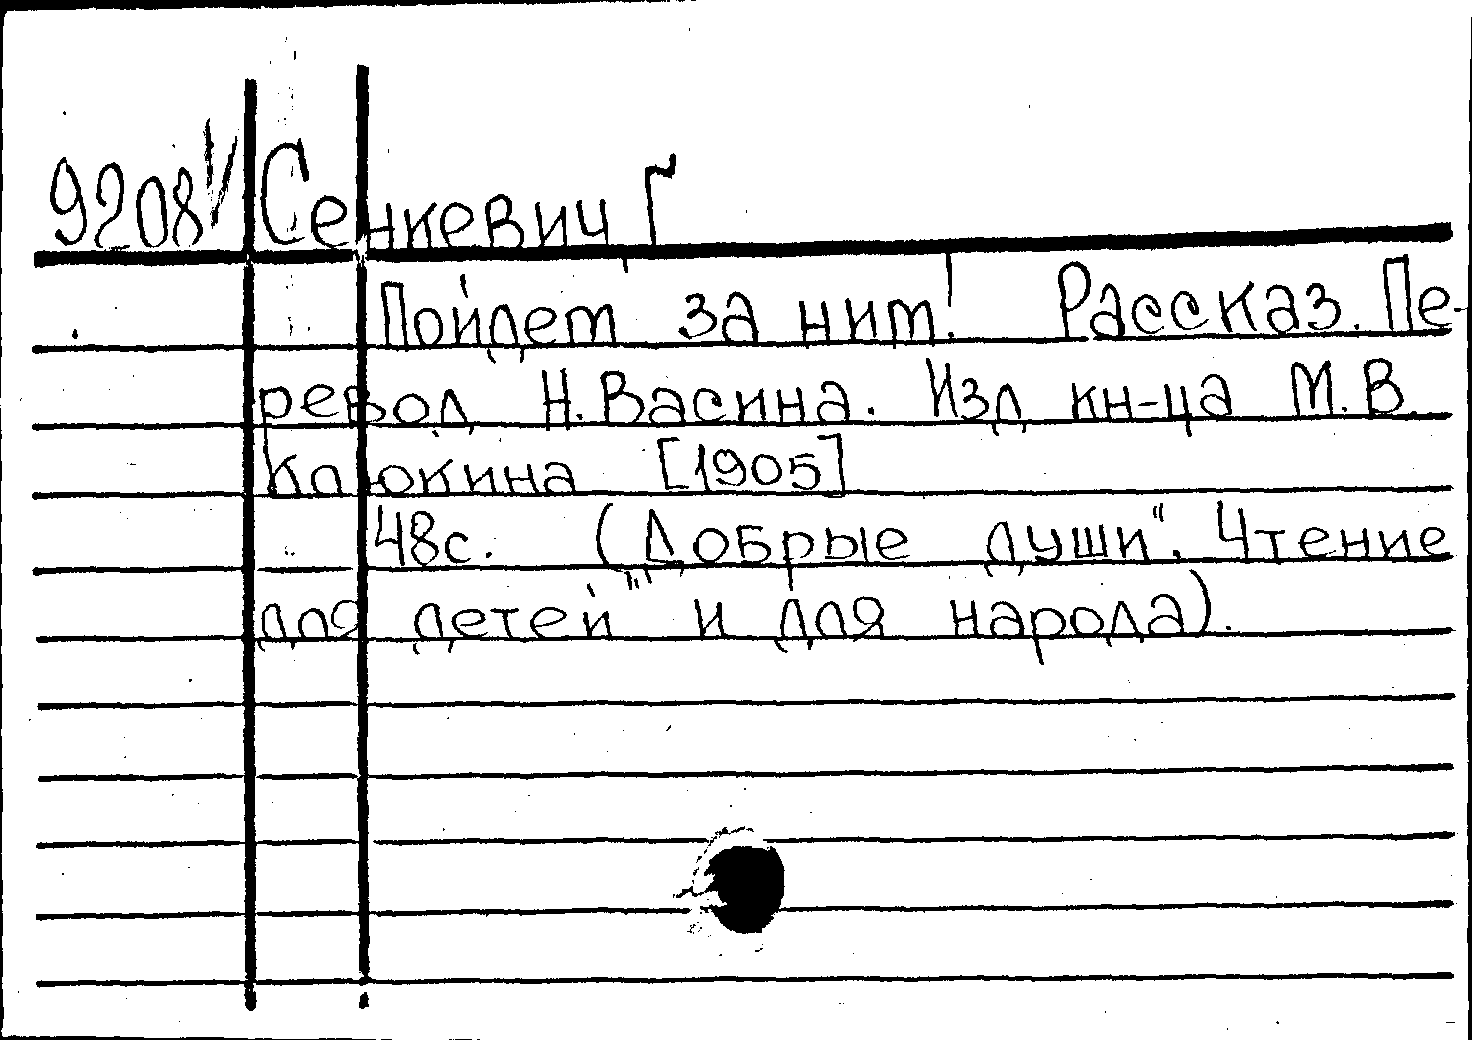 9208 Сенкевич Г
Пойдет за ним! Рассказ. Пе-
ревод Н. Васина. Изд кн-ца М. В
Клюкина [1905]
48с. (Добрые души". Чтение
для детей" и для народа).